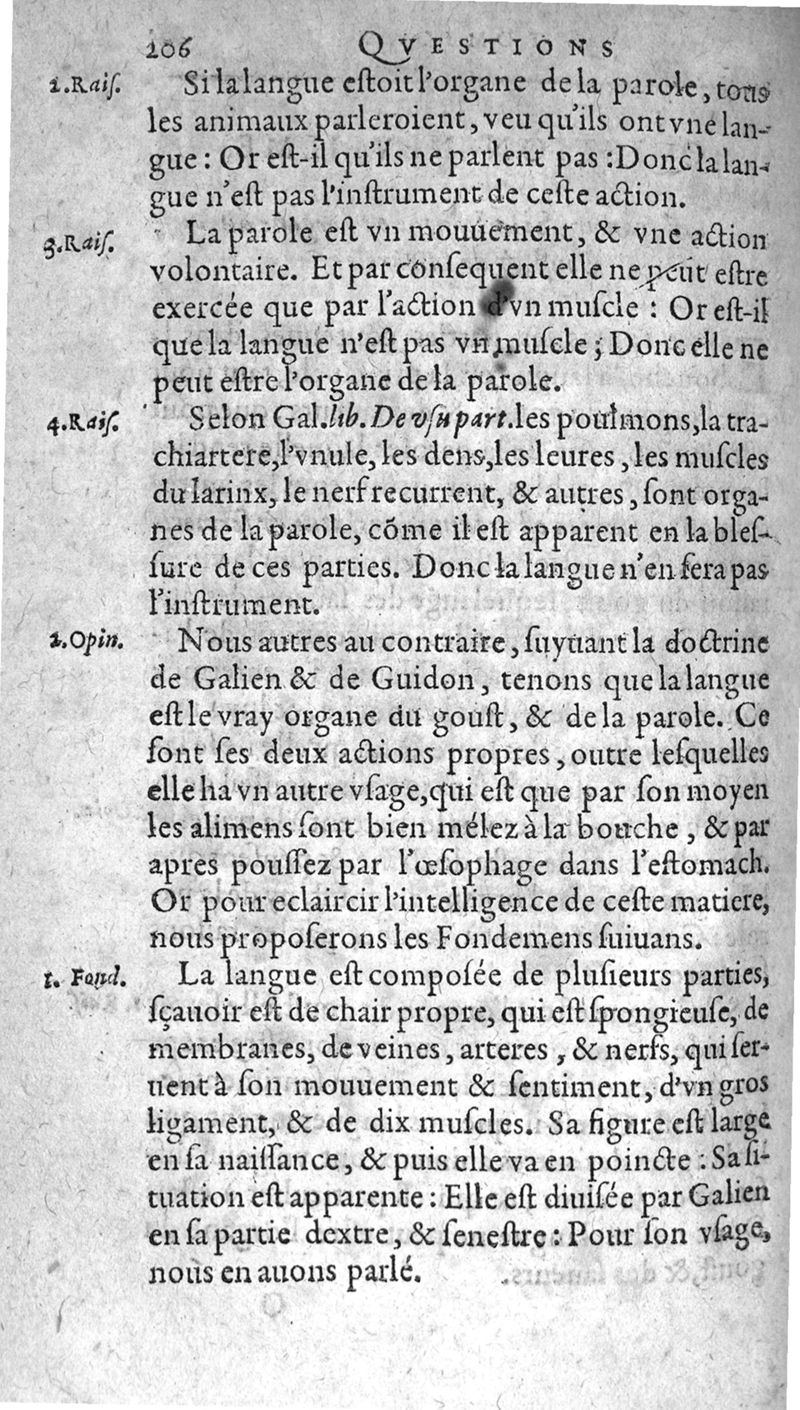 206 QVESTIONS
2.Raiſ. Si la langue eſtoit l'organe de la parole, tous
les animaux parleroient, veu qu'ils ont vne lan-
gue : Or eſt-il qu'ils ne parlent pas : Donc la lan-
gue n'eſt pas l'inſtrument de ceſte action.
3.Raiſ. La parole eſt vn mouuement, & vne action
volontaire. Et par conſequent elle ne peut eſtre
exercée que par l'action d'vn muſcle : Or eſt-il
que la langue n'eſt pas vn muſcle ; Donc elle ne
peut eſtre l'organe de la parole.
4.Raiſ. Selon Gal. lib. De vſu part. les poulmons, la tra-
chiartere, l'vnule, les dens, les leures, les muſcles
du larinx, le nerf recurrent, & autres, ſont orga-
nes de la parole, cõme il eſt apparent en la bleſ-
ſure de ces parties. Donc la langue n'en ſera pas
l'inſtrument.
2.Opin. Nous autres au contraire, ſuyuant la doctrine
de Galien & de Guidon, tenons que la langue
eſt le vray organe du gouſt, & de la parole. Ce
ſont ſes deux actions propres, outre leſquelles
elle ha vn autre vſage, qui eſt que par ſon moyen
les alimens ſont bien mélez à la bouche, & par
apres pouſſez par l'œſophage dans l'eſtomach.
Or pour eclaircir l'intelligence de ceſte matiere,
nous propoſerons les Fondemens ſuiuans.
1. Fond. La langue eſt compoſée de pluſieurs parties,
ſçauoir eſt de chair propre, qui eſt ſpongieuſe, de
membranes, de veines, arteres, & nerfs, qui ſer-
uent à ſon mouuement & ſentiment, d'vn gros
ligament, & de dix muſcles. Sa figure eſt large
en ſa naiſſance, & puis elle va en poincte : Sa ſi-
tuation eſt apparente : Elle eſt diuiſée par Galien
en ſa partie dextre, & ſeneſtre : Pour ſon vſage,
nous en auons parlé.